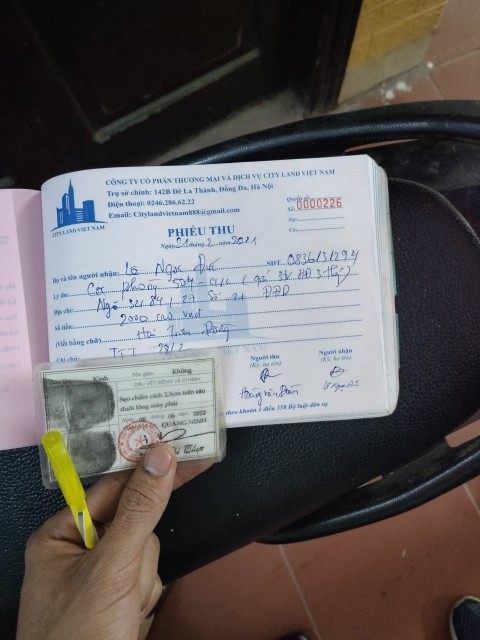 CÔNG TY CỔ PHẦN THƯƠNG MẠI VÀ DỊCH VỤ CITY LAND VIỆT NAM
Trụ sở chính: 142B Đê La Thành, Đống Đa, Hà Nội
Điện thoại: 0246.286.62.22
Email: Citylandvietnam888@gmail.com
CITY LAND VIỆT NAM
Quyển số:
Số: 0000226
Nợ:
Có:
PHIẾU THU
Ngày 21 tháng 2 năm 2021
Họ và tên người nhận: Lò Ngọc SĐT. 0836131294
Lý do: Cọc phòng
Địa chỉ: Ngõ
Số tiền: 2000 000 vnđ
(Viết bằng chữ) Hai Triệu Đồng
Ghi chú: TTT 28/2
Người thu
(Ký, họ tên)
Người nhận
(Ký, họ tên)
theo khoản 1 điều 358 Bộ luật dân sự
Kinh
Tôn giáo: Không
DẤU VẾT RIÊNG VÀ DỊ HÌNH
Sẹo chấm cách 2,5cm trên sau
đuôi lông mày phải
Ngày 06 tháng 06 2012
QUẢNG NINH